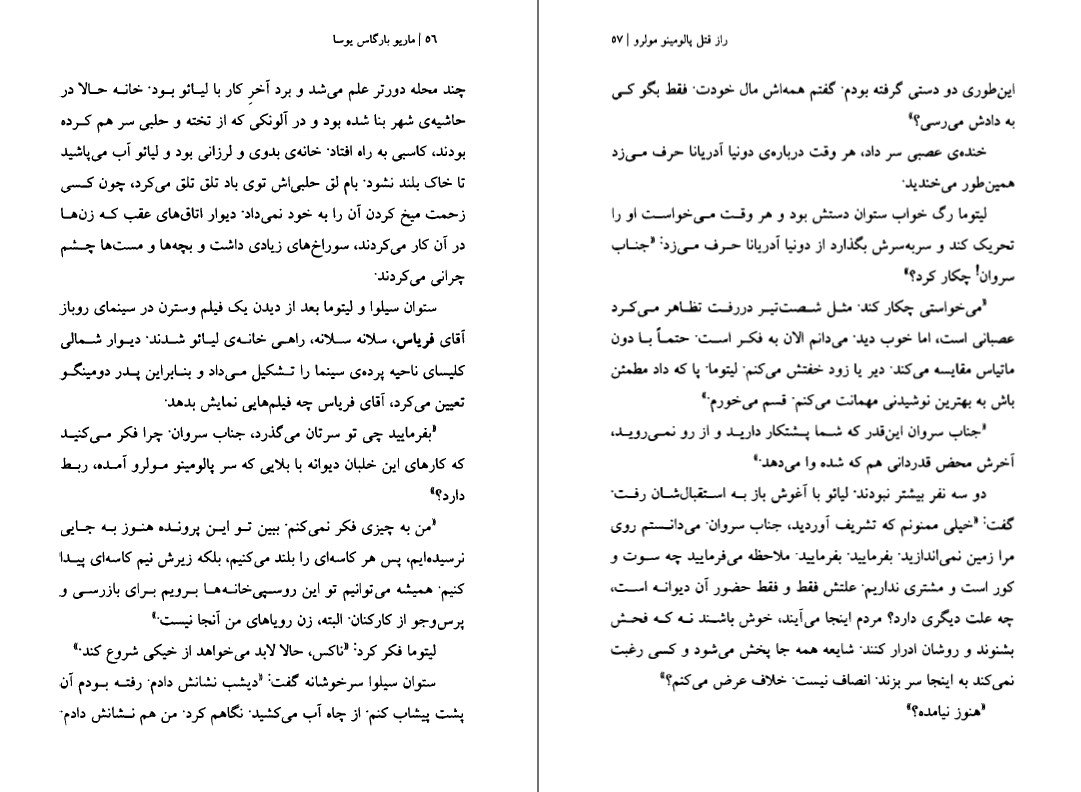 ۵۶ | ماریو بارگاس یوسا
چند محله دورتر علم می‌شد و برد آخرِ کار با لیائو بود. خانه حالا در
حاشیه‌ی شهر بنا شده بود و در آلونکی که از تخته و حلبی سر هم کرده
بودند، کاسبی به راه افتاد. خانه‌ی بدوی و لرزانی بود و لیائو آب می‌پاشید
تا خاک بلند نشود. بام لق حلبی‌اش توی باد تلق تلق می‌کرد، چون کسی
زحمت میخ کردن آن را به خود نمی‌داد. دیوار اتاق‌های عقب که زن‌ها
در آن کار می‌کردند، سوراخ‌های زیادی داشت و بچه‌ها و مست‌ها چشم
چرانی می‌کردند.
ستوان سیلوا و لیتوما بعد از دیدن یک فیلم وسترن در سینمای روباز
آقای فریاس، سلانه سلانه، راهی خانه‌ی لیائو شدند. دیوار شمالی
کلیسای ناحیه پرده‌ی سینما را تشکیل می‌داد و بنابراین پدر دومینگو
تعیین می‌کرد، آقای فریاس چه فیلم‌هایی نمایش بدهد.
«بفرمایید چی تو سرتان می‌گذرد، جناب سروان. چرا فکر می‌کنید
که کارهای این خلبان دیوانه با بلایی که سر پالومینو مولرو آمده، ربط
دارد؟»
«من به چیزی فکر نمی‌کنم. ببین تو این پرونده هنوز به جایی
نرسیده‌ایم، پس هر کاسه‌ای را بلند می‌کنیم، بلکه زیرش نیم کاسه‌ای پیدا
کنیم. همیشه می‌توانیم تو این روسپی‌خانه‌ها برویم برای بازرسی و
پرس‌وجو از کارکنان. البته، زن رویاهای من آنجا نیست.»
لیتوما فکر کرد: «ناکس، حالا لابد می‌خواهد از خیکی شروع کند.»
ستوان سیلوا سرخوشانه گفت: «دیشب نشانش دادم. رفته بودم آن
پشت پیشاب کنم. از چاه آب می‌کشید. نگاهم کرد. من هم نشانش دادم.
راز قتل پالومینو مولرو | ۵۷
این‌طوری دو دستی گرفته بودم. گفتم همه‌اش مال خودت. فقط بگو کی
به دادش می‌رسی؟»
خنده‌ی عصبی سر داد، هر وقت درباره‌ی دونیا آدریانا حرف می‌زد
همین‌طور می‌خندید.
لیتوما رگ خواب ستوان دستش بود و هر وقت می‌خواست او را
تحریک کند و سربه‌سرش بگذارد از دونیا آدریانا حرف می‌زد: «جناب
سروان! چکار کرد؟»
«می‌خواستی چکار کند. مثل شصت‌تیر دررفت تظاهر می‌کرد
عصبانی است، اما خوب دید. می‌دانم الان به فکر است. حتماً با دون
ماتیاس مقایسه می‌کند. دیر یا زود خفتش می‌کنم. لیتوما. پا که داد مطمئن
باش به بهترین نوشیدنی مهمانت می‌کنم. قسم می‌خورم.»
«جناب سروان این‌قدر که شما پشتکار دارید و از رو نمی‌روید،
آخرش محض قدردانی هم که شده وا می‌دهد.»
دو سه نفر بیشتر نبودند. لیائو با آغوش باز به استقبال‌شان رفت.
گفت: «خیلی ممنونم که تشریف آوردید، جناب سروان. می‌دانستم روی
مرا زمین نمی‌اندازید. بفرمایید. بفرمایید. ملاحظه می‌فرمایید چه سوت و
کور است و مشتری نداریم. علتش فقط و فقط حضور آن دیوانه است،
چه علت دیگری دارد؟ مردم اینجا می‌آیند، خوش باشند نه که فحش
بشنوند و روشان ادرار کنند. شایعه همه جا پخش می‌شود و کسی رغبت
نمی‌کند به اینجا سر بزند. انصاف نیست. خلاف عرض می‌کنم؟»
«هنوز نیامده؟»